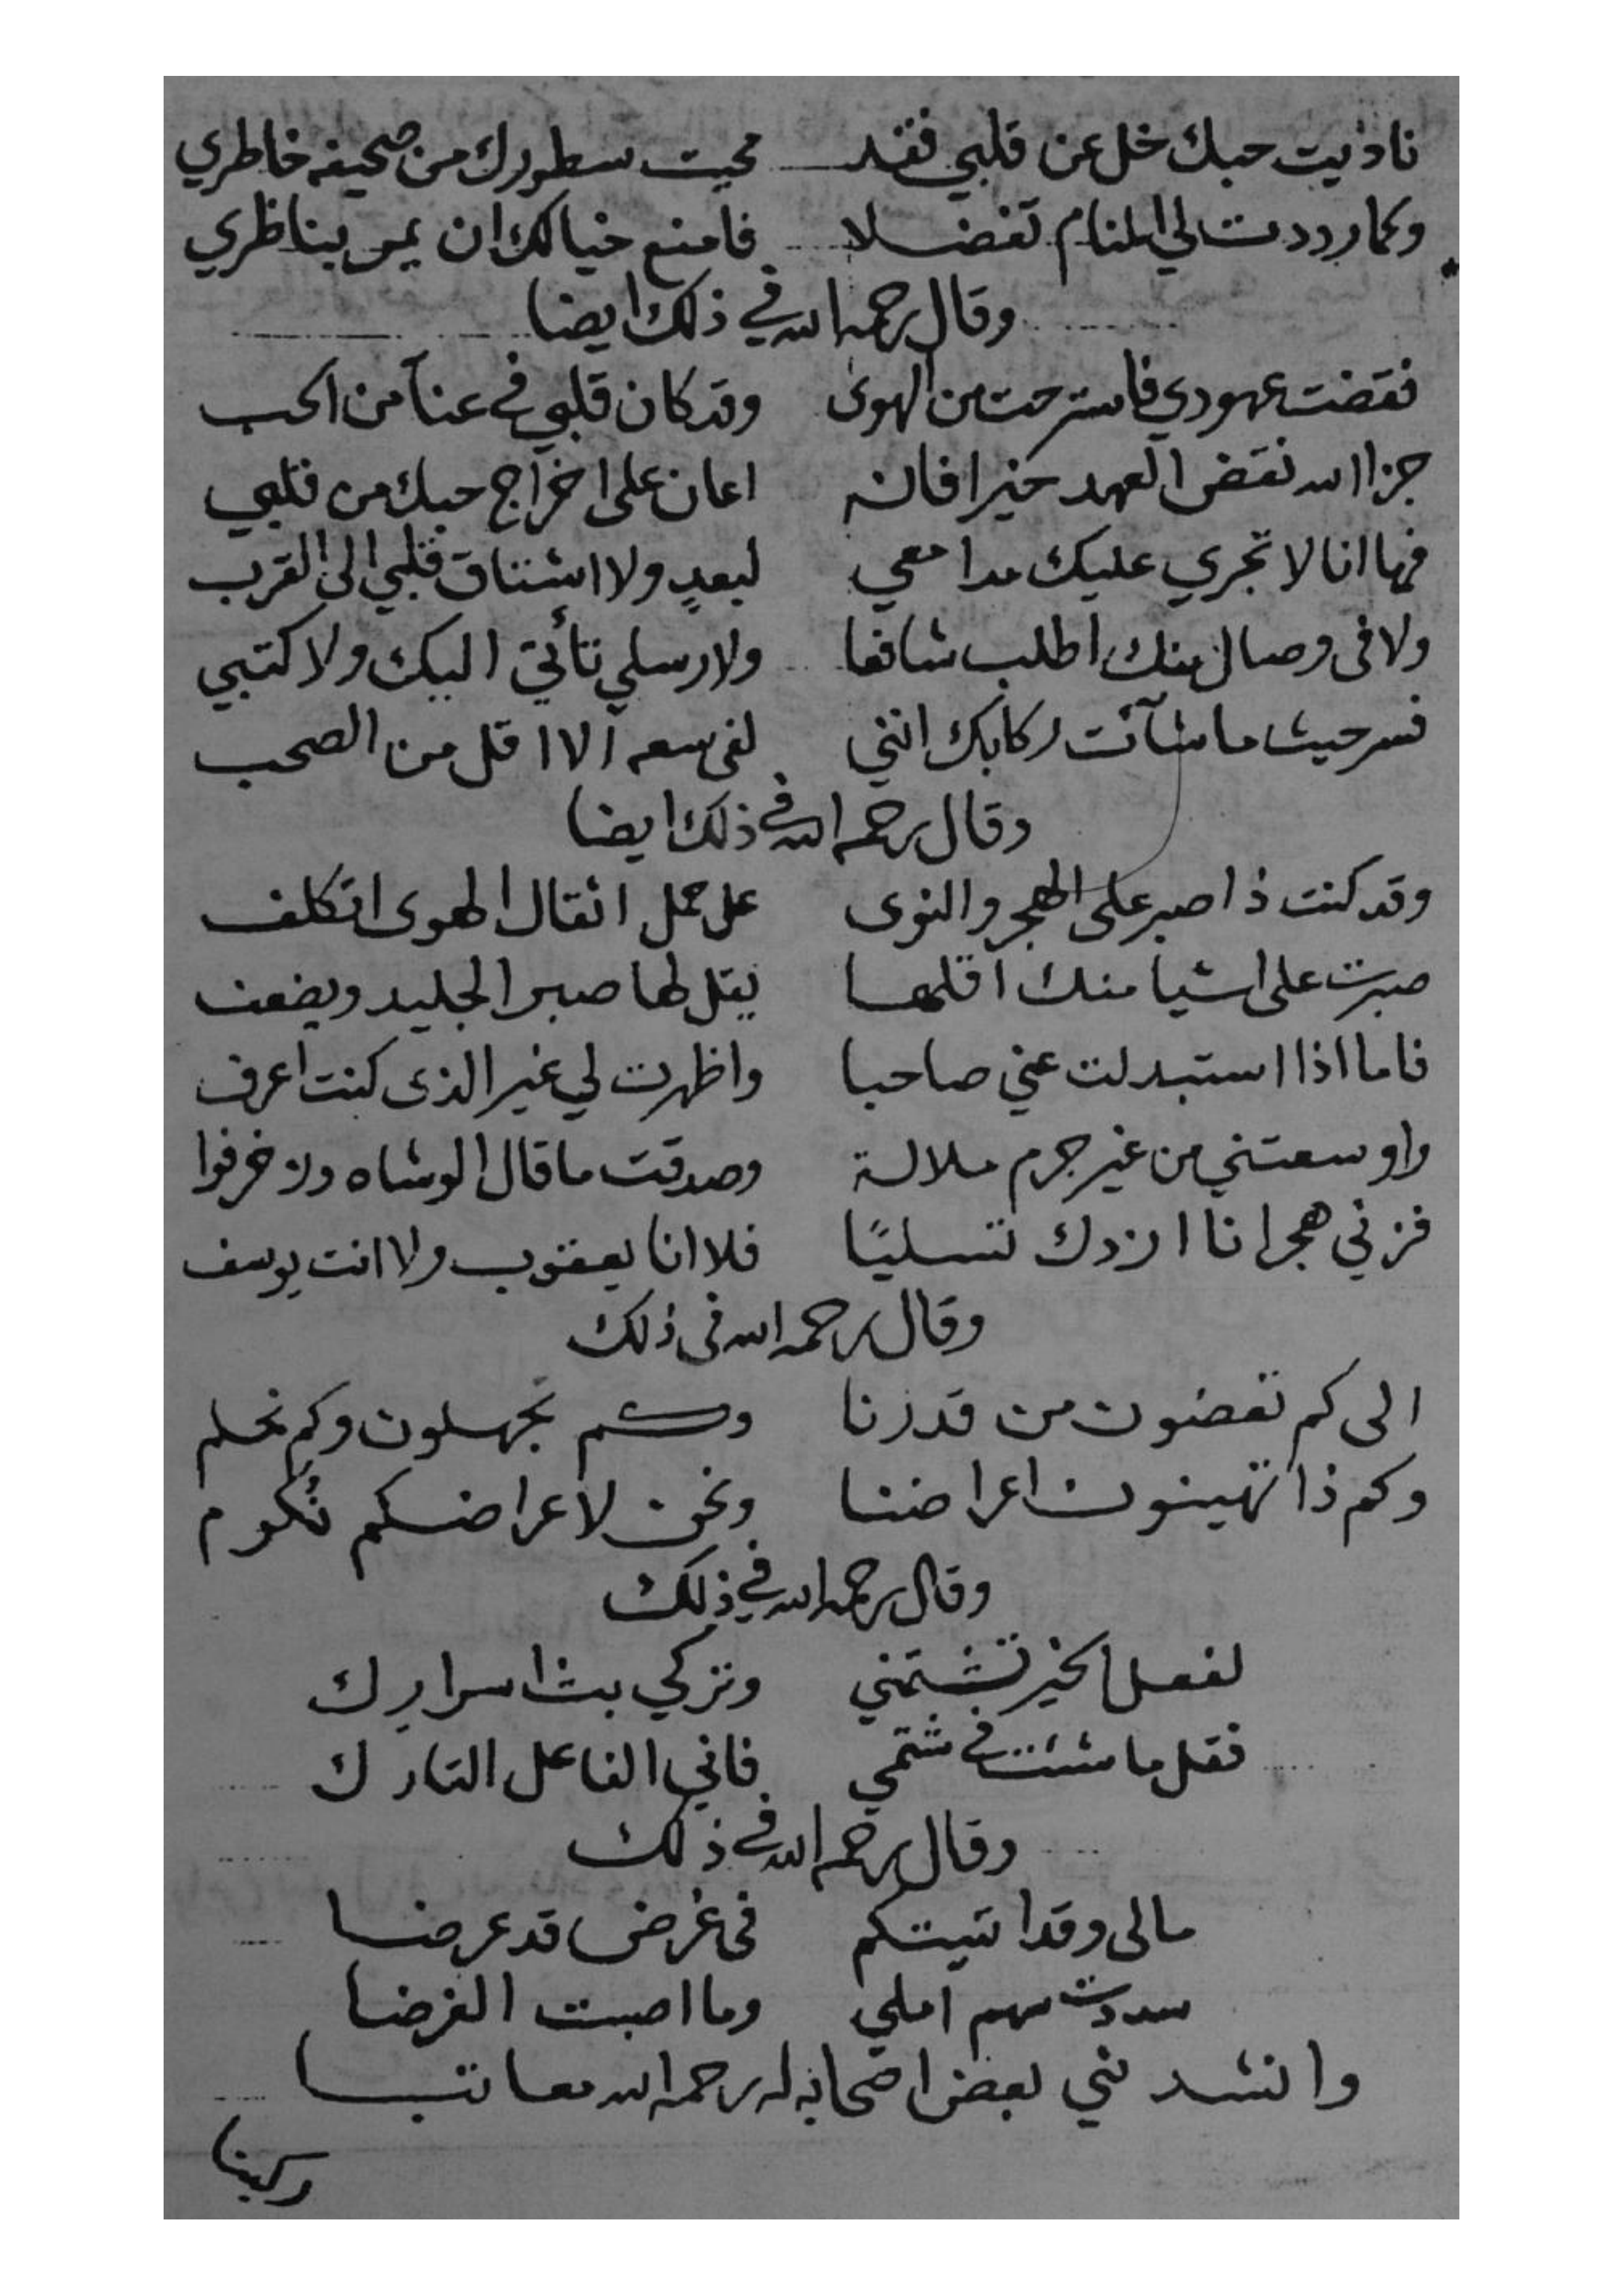 ناديت حبك خل عن قلبي فقد محيت سطورك من صحيفه خاطري
وكما رددت لي المنام تفضلا فامنع خيالك ان يمر بناظري
وقال رحمه الله في ذلك ايضا
نقضت عهودي فاسترحت من الهوى وقد كان قلبي في عنآ من الحب
جزا الله نقض العهد خيرا فانه اعان على اخراج حبك من قلبي
فها انا لا تجري عليك مدامعي لبعدٍ ولا اشتاق قلبي الى القرب
ولا في وصال منك اطلب شافعا ولا رسلي تأتي اليك ولا كتبي
فسر حيث ما شآئت ركابك انني لفي سعه الا اقل من الصحب
وقال رحمه الله في ذلك ايضا
وقد كنت ذا صبر على الهجر والنوى على حمل اثقال الهوى اتكلف
صبرت على اشيا منك اقلها يقل لها صبر الجليد ويضعف
فاما اذا استبدلت عني صاحبا واظهرت لي غير الذى كنت اعرف
واوسعتني من غير جرم ملالة وصدقت ما قال الوشاه وزخرفوا
فزني هجرانا ازدك تسليًا فلا انا يعقوب ولا انت يوسف
وقال رحمه الله في ذلك
الى كم تغضون من قدرنا وكم تجهلون وكم نحلم
وكم ذا تهينون اعراضنا ونحن لاعراضكم نُكرم
وقال رحمه الله في ذلك
لفعل الخير تشتمني وتزكي بث اسرارك
فقل ما شئت في شتمي فاني الفاعل التارك
وقال رحمه الله في ذلك
مالى وقد اتيتكم في غرض قد عرضا
سددت سهم املي وما اصبت الغرضا
وانشدني بعض اصحابه له رحمه الله معاتبا
ركبنا